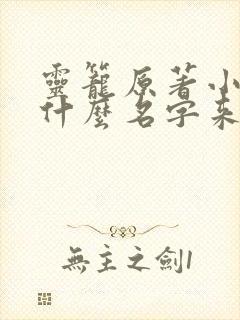 靈籠原著小
什麼名字來
無主之劍1